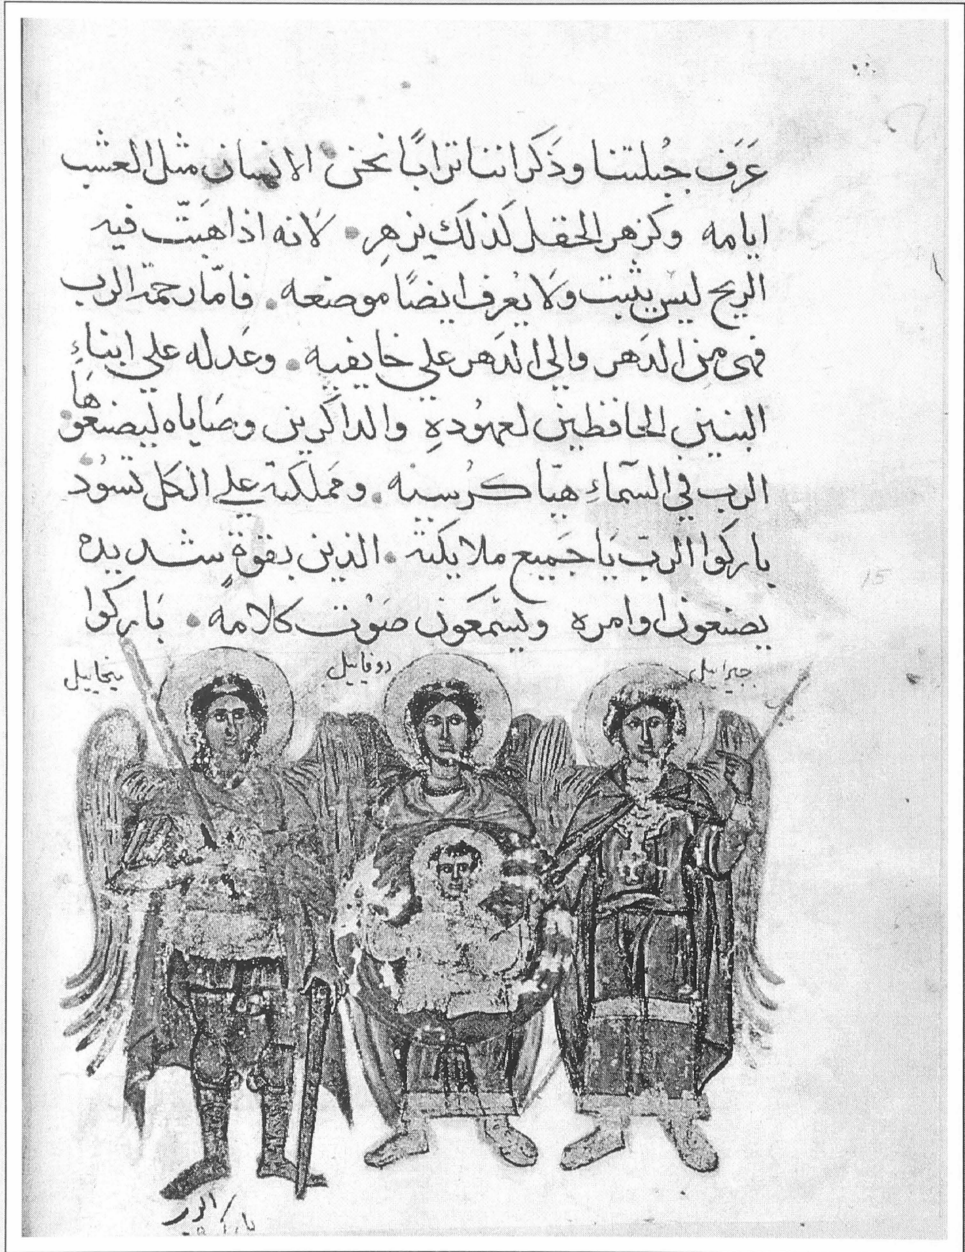 عَرَف جِبُلتنا وذَكر اننا ترابًا نحن الانسان مثل العشب
ايامه وكزهر الحقل كذلك يزهر. لانه اذا هَبَّت فيه
الريح ليس يثبت ولا يعرف ايضًا موضعه. فامّا رحمة الرب
فهى من الدَهر والي الدَهر علي خايفيه. وعَدله علي ابناءِ
البنين الحافظين لعهودهِ والداكرين وصَاياه ليصنعوها
الرب في السَماءِ هيّا كرُسيه. ومَملكته علي الكل تسُود
باركوا الرب يَا جَميع ملايكته. الذين بقوةٍ شديده
يصنعون اوامره ويسَمعون صَوْت كلامه. بَاركوا
جبراييل
روفاييل
ميخاييل
باركوا